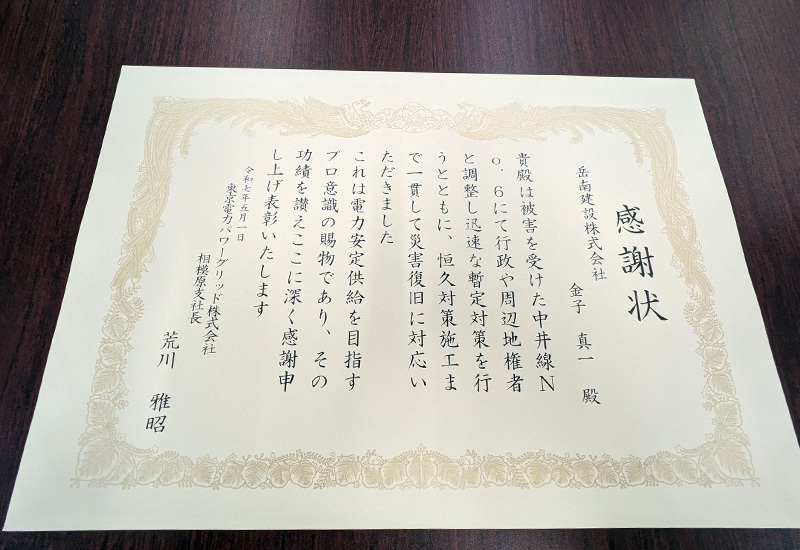 感謝状
岳南建設株式会社
金子 真一 殿
貴殿は被害を受けた中井線N
o.6にて行政や周辺地権者
と調整し迅速な暫定対策を行
うとともに、恒久対策施工ま
で一貫して災害復旧に対応い
ただきました
これは電力安定供給を目指す
プロ意識の賜物であり、その
功績を讃えここに深く感謝申
し上げ表彰いたします
令和七年五月一日
東京電力パワーグリッド株式会社
相模原支社長
荒川 雅昭